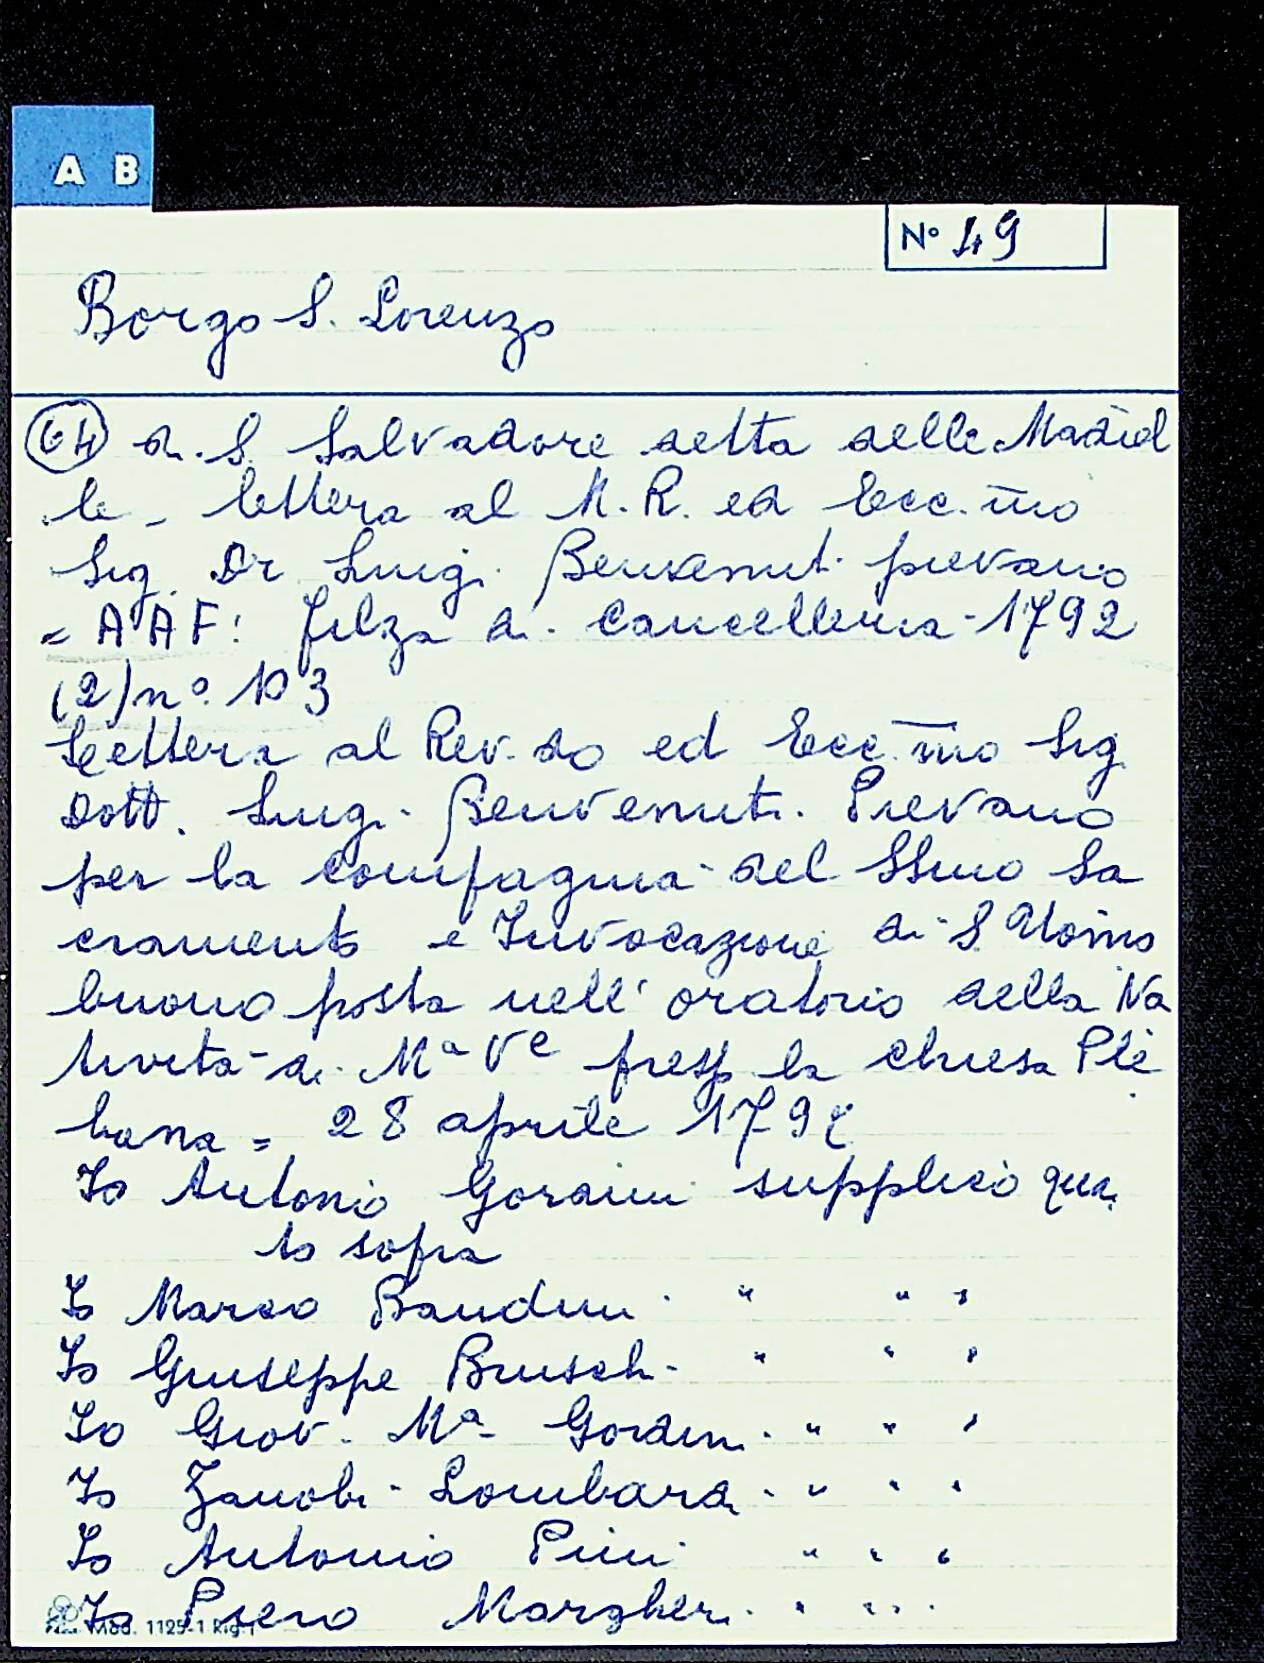 A B
N° 49
Borgo S. Lorenzo
64 di S. Salvadore detta delle Madiel
le - lettera al M. R. ed Ecc.mo
Sig. Dr Luigi Benvenuti pievano
= AAF: filza di Cancelleria - 1792
(2) n° 103
Lettera al Rev.do ed Ecc.mo Sig
Dott. Luigi Benvenuti Pievano
per la compagnia del SSmo Sa
cramento e Invocazione di S. Uomo
buono posta nell' oratorio della Na
tività di Mª Ve presso la chiesa Ple
bana = 28 aprile
Io Antonio Gordini supplico qua
to sopra
Io Marco Bandini " " "
Io Giuseppe Bruschi " " "
Io Giov. Mª Gordini " " "
Io Zanobi Lombardi " " "
Io Antonio Pini " " "
Io Piero Margheri " " "
Mod. 1125-1 Rig.